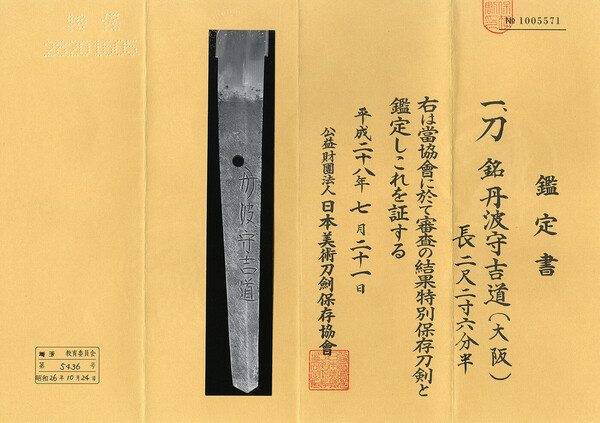 № 1005571
鑑定書
一、刀 銘 丹波守吉道（大阪）
長 二尺二寸六分半
右は當協會に於て審査の結果特別保存刀剣と
鑑定しこれを証する
平成二十八年 七月二十一日
公益財團法人 日本美術刀劍保存協會
丹波守吉道
教育委員会
第 5436 号
昭和26年10月24日